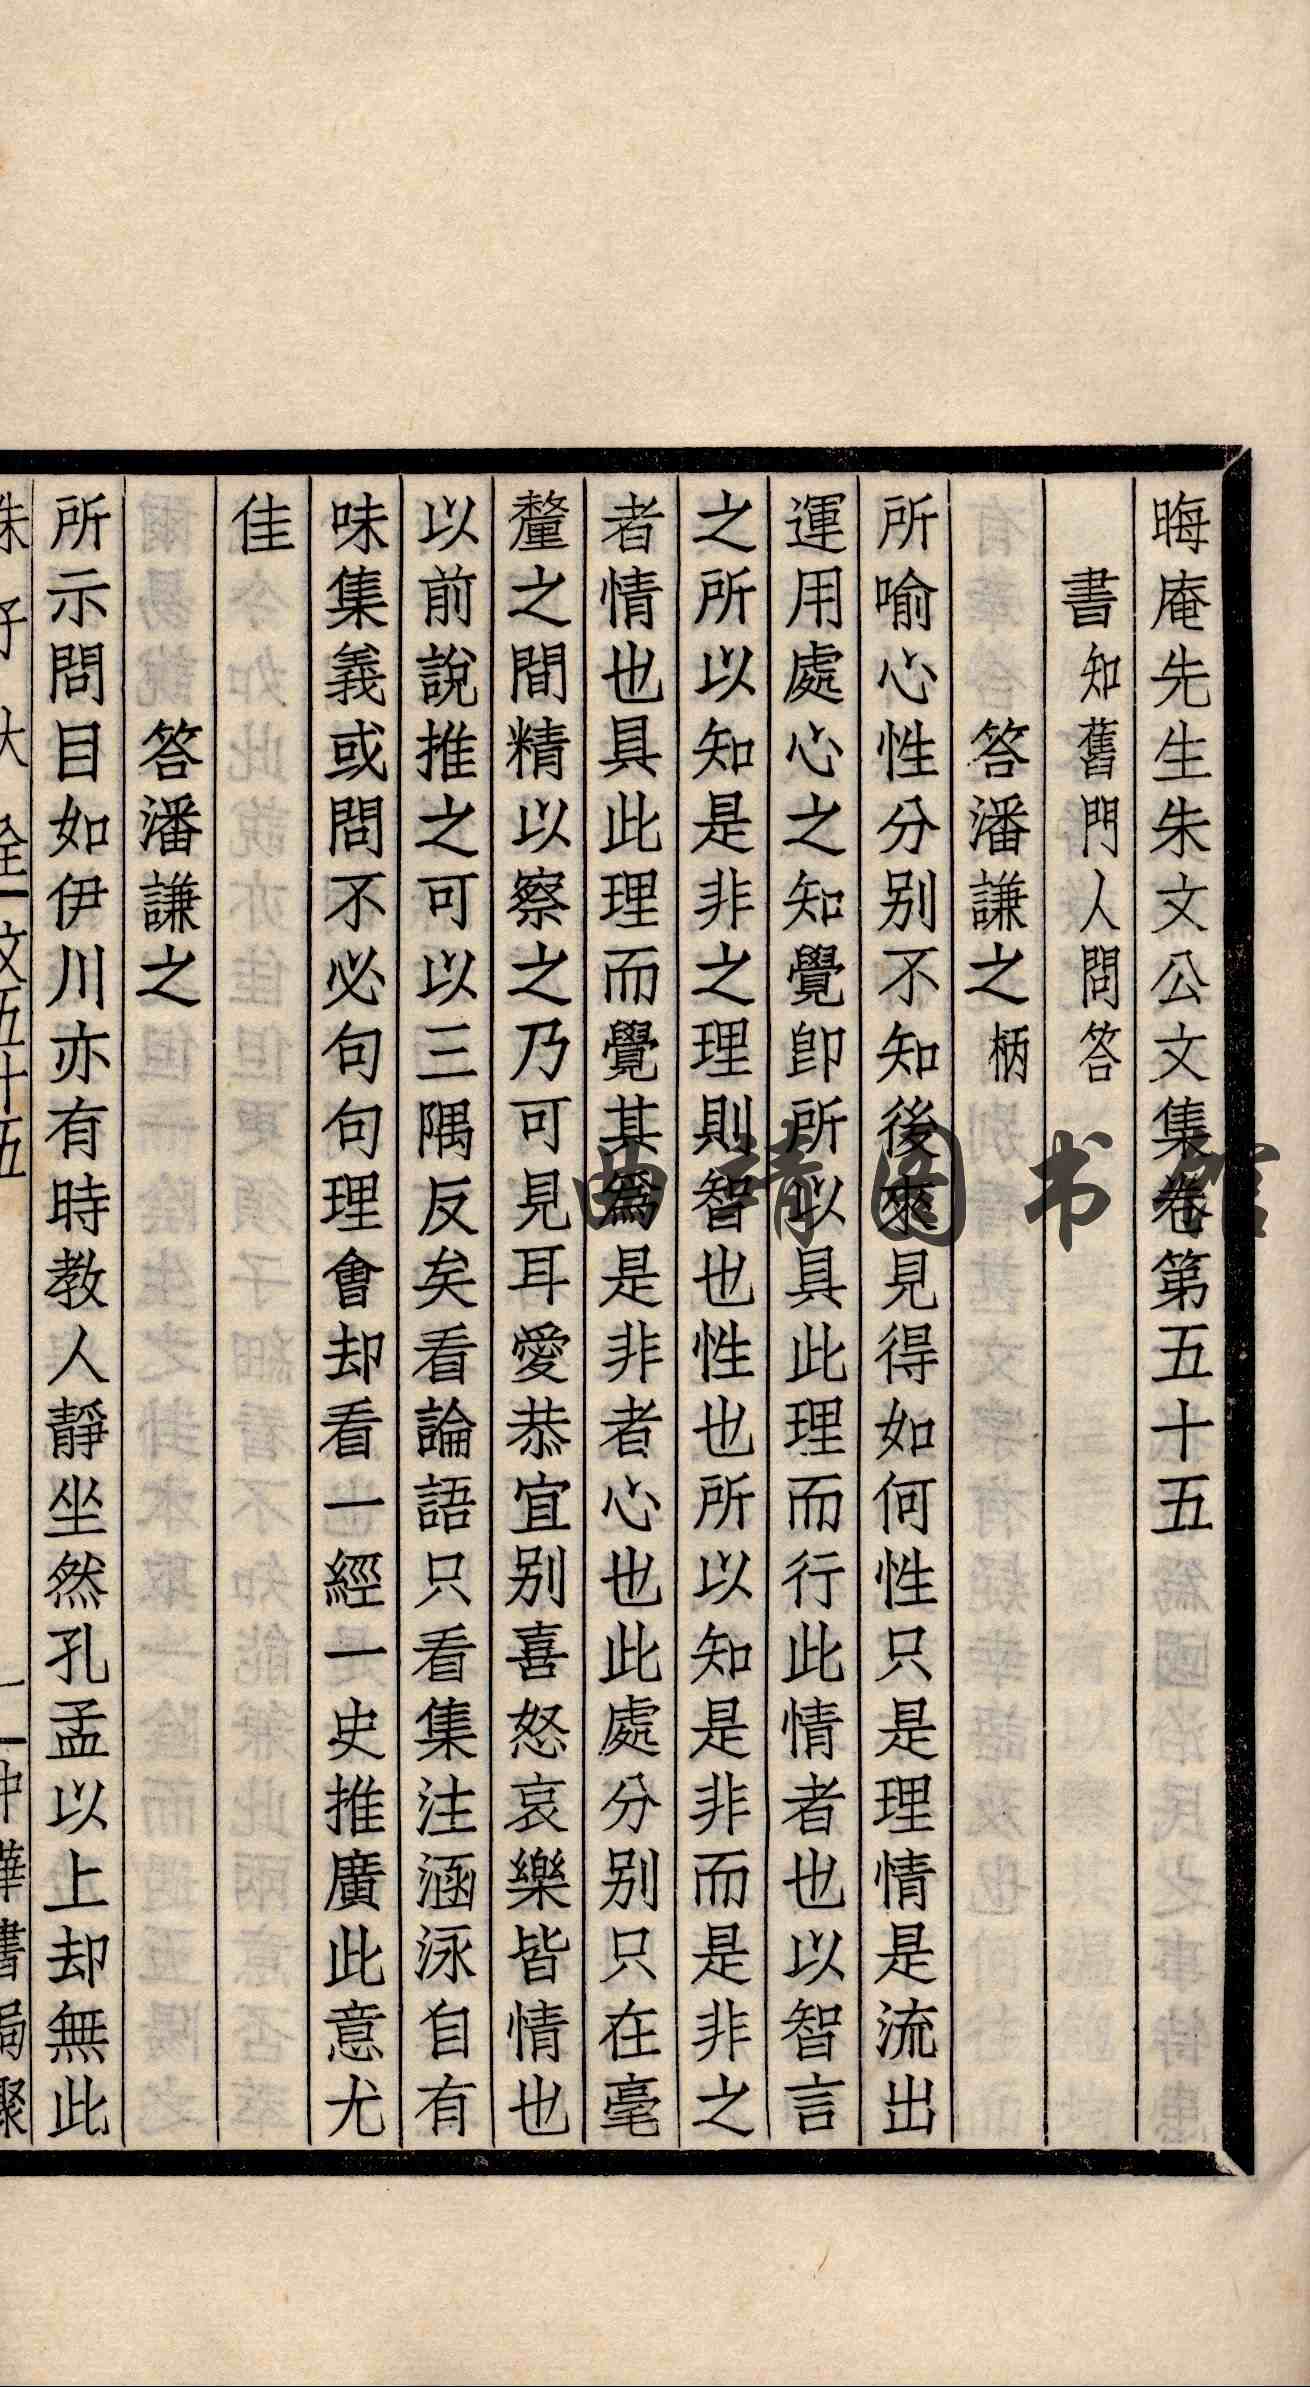 晦庵先生朱文公文集卷第五十五
書知舊門人問答
答潘謙之柄
所喻心性分别不知後來見得如何性只是理情是流出
運用處心之知覺卽所以具此理而行此情者也以智言
之所以知是非之理則智也性也所以知是非而是非之
者情也具此理而覺其爲是非者心也此處分别只在毫
釐之間精以察之乃可見耳愛恭宜别喜怒哀樂皆情也
以前說推之可以三隅反矣看論語只看集注涵泳自有
味集義或問不必句句理會却看一經一史推廣此意尤
佳
答潘謙之
所示問目如伊川亦有時教人靜坐然孔孟以上却無此
朱子大全 文五十五
一 中華書局聚
曲靖图书馆